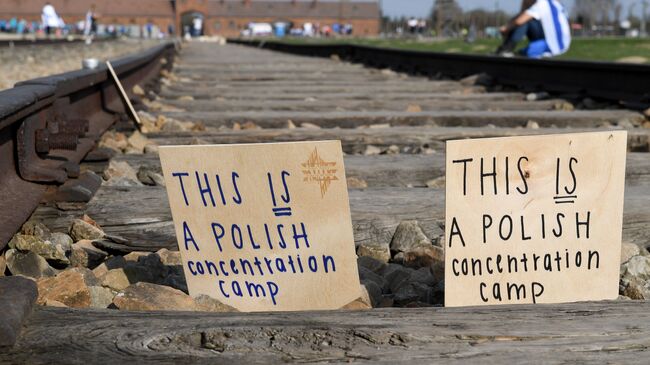 THIS IS
A POLISH
concentration
camp
THIS IS
A POLISH
concentration
camp